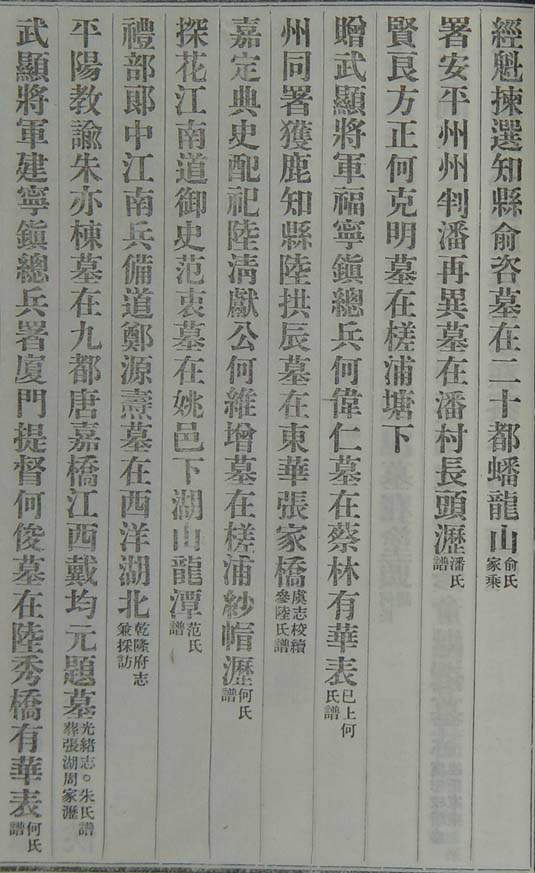 經魁揀選知縣俞咨墓在二十都蟠龍山俞氏家乘
署安平州州判潘再異墓在潘村長頭瀝潘氏譜
賢良方正何克明墓在槎浦塘下
贈武顯將軍福寧鎭總兵何偉仁墓在蔡林有華表已上何氏譜
州同署獲鹿知縣陸拱辰墓在東華張家橋虞志校續參陸氏譜
嘉定典史配祀陸淸獻公何維增墓在槎浦紗帽瀝何氏譜
探花江南道御史范衷墓在姚邑下湖山龍潭范氏譜
禮部郎中江南兵備道鄭源燾墓在西洋湖北乾隆府志兼採訪
平陽教諭朱亦棟墓在九都唐嘉橋江西戴均元題墓光緒志○朱氏譜葬張湖周家瀝
武顯將軍建寧鎭總兵署廈門提督何俊墓在陸秀橋有華表何氏譜